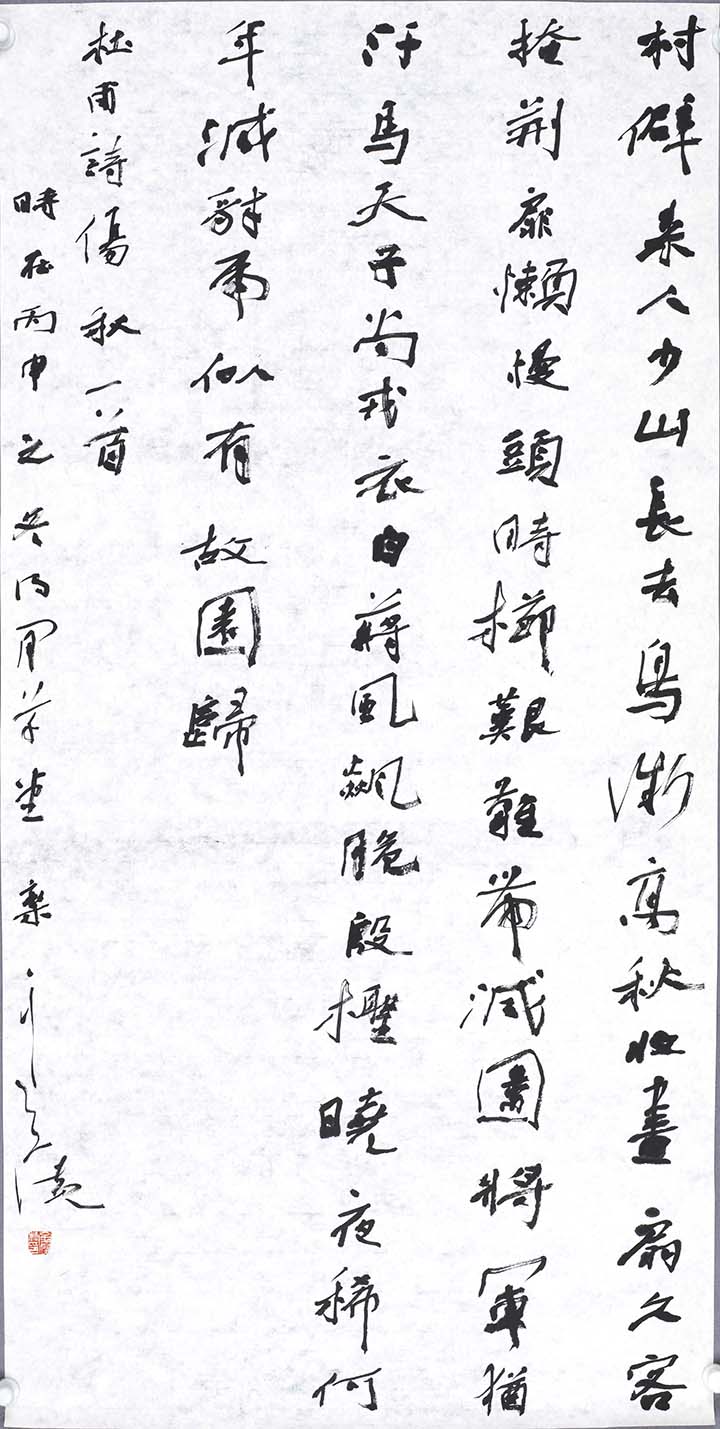 村僻来人少山長去鳥微高秋收畫扇久客
掩荆扉懶慢頭時櫛艱難帶減圍將軍猶
汗馬天子尚戎衣白蔣風飆脆殷檉曉夜稀何
年減豺虎似有故園歸
杜甫詩傷秋一首
時在丙申之冬草堂